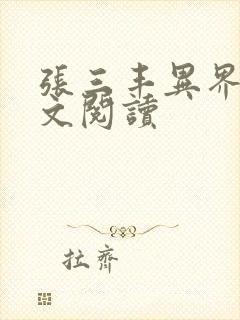 張三丰異界
文閱讀
拉齊